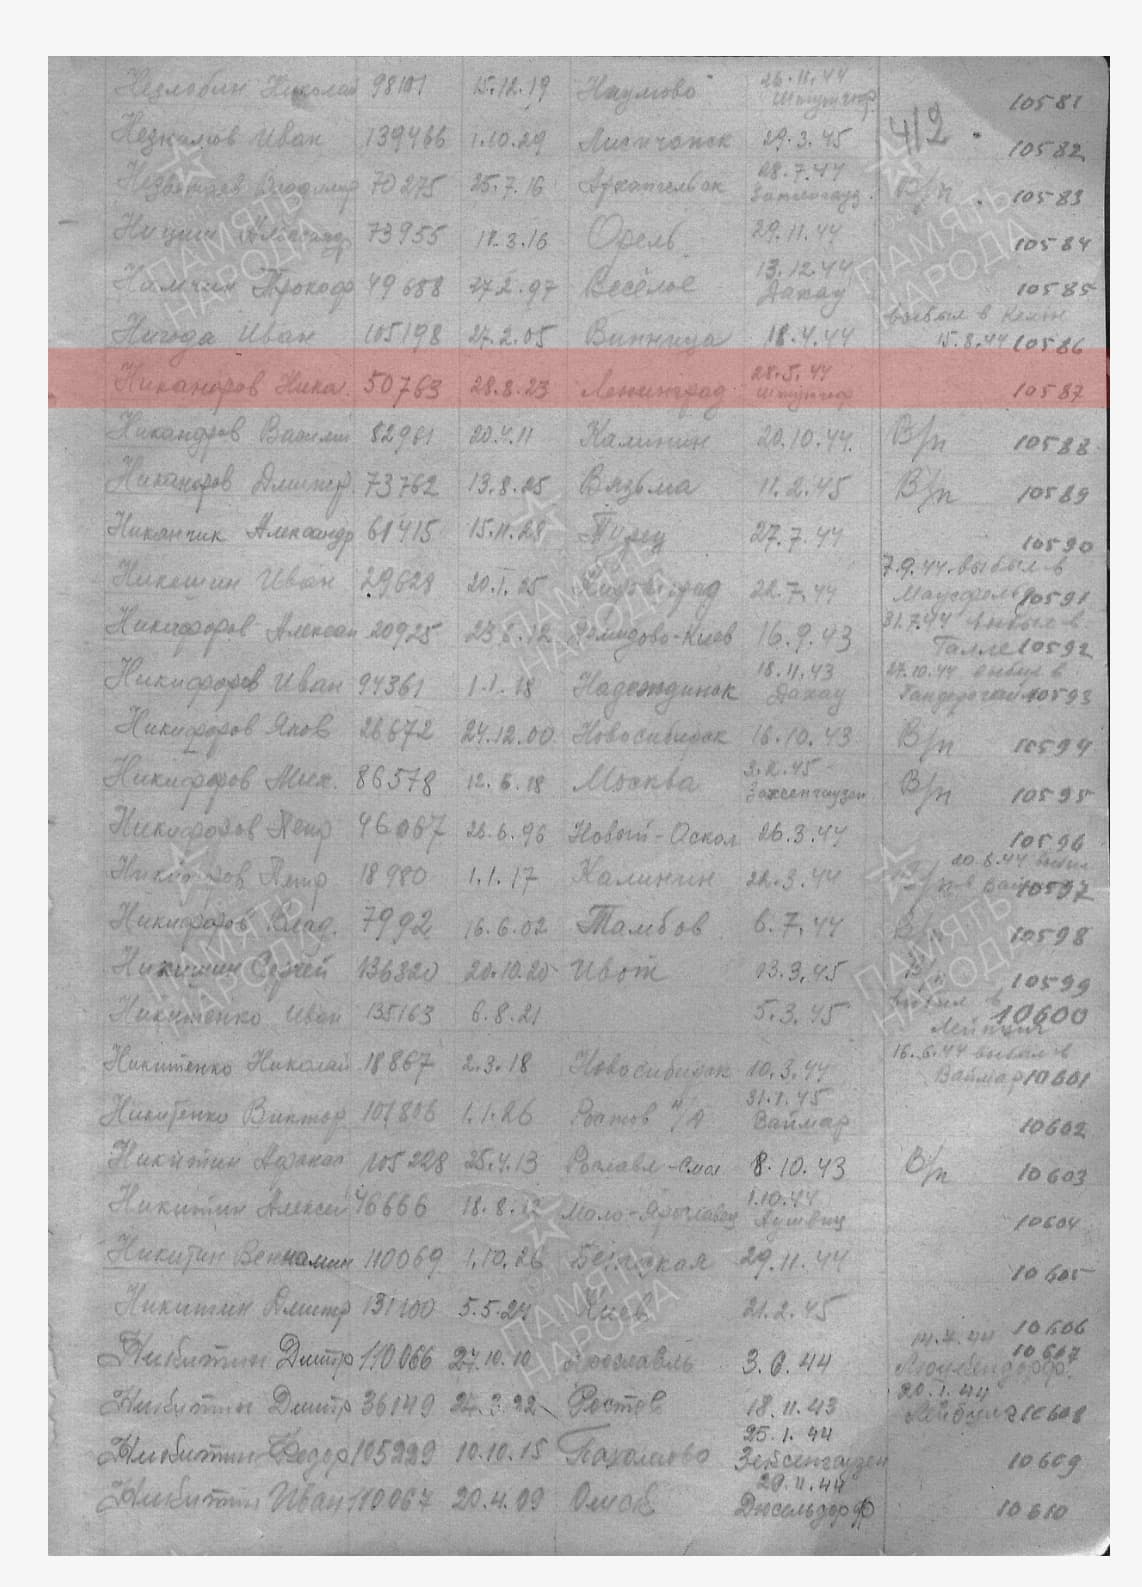 Незлобин Николай 98101 15.12.19 Наумово 26.11.44 10581
Незнамов Иван 139466 1.10.29 Лисичанск 29.3.45 412 10582
Владимир 70275 25.7.16 Архангельск 28.7.44 В/п 10583
73955 18.3.16 Орел 29.11.44 10584
Прокоф 49688 27.2.97 Весёлое 13.12.44 Дахау 10585
Нигода Иван 105198 27.2.05 Винница 18.4.44 выбыл в Кельн 15.8.44 10586
Никаноров Ника. 50763 28.8.23 Ленинград 28.5.44 10587
Никандров Васили 82981 20.4.11 Калинин 20.10.44. В/п 10588
Никаноров Дмитр. 73762 13.8.25 Вязьма 11.2.45 В/п 10589
Никанчик Александр 61415 15.11.28 Турец 27.7.44 10590
Никешин Иван 29628 20.1.25 22.7.44 7.9.44. выбыл в Маусфельд 10591
Никифоров Алексан 20925 16.9.43 31.7.44 выбыл в Галле 10592
Никифоров Иван 94361 1.1.18 Надеждинск 18.11.43 Дахау 27.10.44 выбыл в 10593
Никифоров Яков 26672 24.12.00 Новосибирск 16.10.43 В/п 10594
Никифоров Мих. 86578 12.6.18 Москва Заксенгаузен В/п 10595
Никифоров Петр 46067 26.6.96 Новый-Оскол 26.3.44 10596
Никифоров Петр 18980 1.1.17 Калинин 22.3.44 10597
Никифоров Влад. 7992 16.6.02 Тамбов 6.7.44 В/п 10598
Никитин Сергей 136320 20.10.20 Ивот 13.3.45 10599
Никитенко Иван 135163 6.8.21 5.3.45 выбыл в Лейпциг 10600
Никитенко Николай 18867 2.3.18 Новосибирск 10.3.44 16.6.44 выбыл в Ваймар 10601
Никитенко Виктор 101806 1.1.26 Ростов н/Д 31.1.45 Ваймар 10602
Никитин 105228 25.4.13 Рославл-Смол 8.10.43 В/п 10603
Никитин Алексей 46666 Мало-Ярославец 1.10.44 Аушвиц 10604
Никитин Вениамин 110069 1.10.26 29.11.44 10605
Никитин Дмитр 131100 5.5.24 Киев 21.2.45 10606
Никитин Дмитр 110066 27.10.10 Ярославль 3.6.44 14.7.44 10607
Никитин Дмитр 36149 24.3.22 Ростов 18.11.43 20.1.44 10608
Никитин Федор 105229 10.10.15 Пахомово 25.1.44 10609
Никитин Иван 110067 20.4.09 Омск 29.11.44 Дюсельдорф 10610
ПАМЯТЬ НАРОДА
ПАМЯТЬ НАРОДА
ПАМЯТЬ НАРОДА
ПАМЯТЬ НАРОДА
ПАМЯТЬ НАРОДА
ПАМЯТЬ НАРОДА